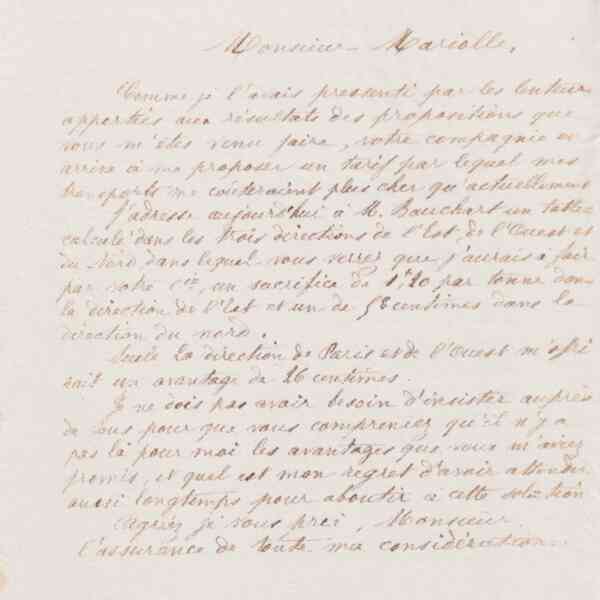 Monsieur Mariolle,
Comme je l'avais pressenti par les lenteurs
apportées aux résultats des propositions que
vous m'êtes venu faire, votre compagnie en
arrive à me proposer un tarif par lequel mes
transports me coûteraient plus cher qu'actuellement
J'adresse aujourd'hui à M. Bauchart un table
calculé dans les trois directions de l'Est, de l'Ouest et
du Nord dans lequel vous verrez que j'aurais à faire
par votre Cie, un sacrifice de 1f20 par tonne dans
la direction de l'Est et un de 58 centimes dans la
direction du nord.
Seule la direction de Paris et de l'Ouest m'offri
rait un avantage de 26 centimes.
Je ne dois pas avoir besoin d'insister auprès
de vous pour que vous compreniez qu'il n'y a
pas là pour moi les avantages que vous m'aviez
promis, et quel est mon regret d'avoir attendu
aussi longtemps pour aboutir à cette solution
Agréez je vous prei, Monsieur
l'assurance de toute ma considération.